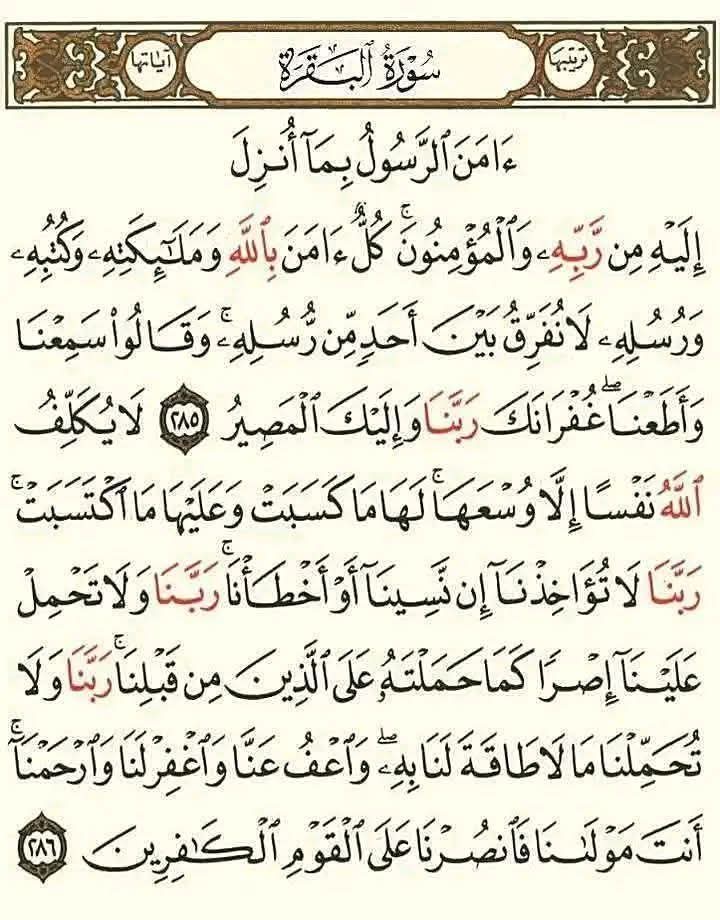 ترتيبها سُورَةُ ٱلْبَقَرَةِ آياتها
ءَامَنَ ٱلرَّسُولُ بِمَآ أُنزِلَ
إِلَيْهِ مِن رَّبِّهِۦ وَٱلْمُؤْمِنُونَۚ كُلٌّ ءَامَنَ بِٱللَّهِ وَمَلَٰٓئِكَتِهِۦ وَكُتُبِهِۦ
وَرُسُلِهِۦ لَا نُفَرِّقُ بَيْنَ أَحَدٍ مِّن رُّسُلِهِۦۚ وَقَالُوا۟ سَمِعْنَا
وَأَطَعْنَاۖ غُفْرَانَكَ رَبَّنَا وَإِلَيْكَ ٱلْمَصِيرُ ٢٨٥ لَا يُكَلِّفُ
ٱللَّهُ نَفْسًا إِلَّا وُسْعَهَاۚ لَهَا مَا كَسَبَتْ وَعَلَيْهَا مَا ٱكْتَسَبَتْۚ
رَبَّنَا لَا تُؤَاخِذْنَآ إِن نَّسِينَآ أَوْ أَخْطَأْنَاۚ رَبَّنَا وَلَا تَحْمِلْ
عَلَيْنَآ إِصْرًا كَمَا حَمَلْتَهُۥ عَلَى ٱلَّذِينَ مِن قَبْلِنَاۚ رَبَّنَا وَلَا
تُحَمِّلْنَا مَا لَا طَاقَةَ لَنَا بِهِۦۖ وَٱعْفُ عَنَّا وَٱغْفِرْ لَنَا وَٱرْحَمْنَآۚ
أَنتَ مَوْلَىٰنَا فَٱنصُرْنَا عَلَى ٱلْقَوْمِ ٱلْكَٰفِرِينَ ٢٨٦